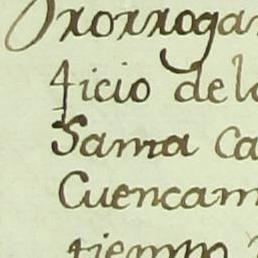 Prorroga
ficio de l
Santa Ca
Cuencam
tiempo